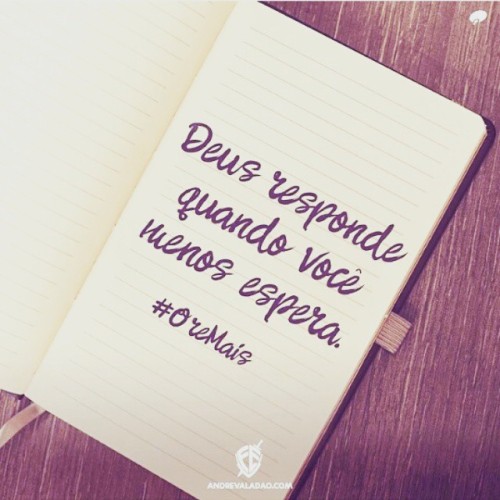 Deus responde
quando você
menos espera.
#OreMais
ANDREVALADAO.COM